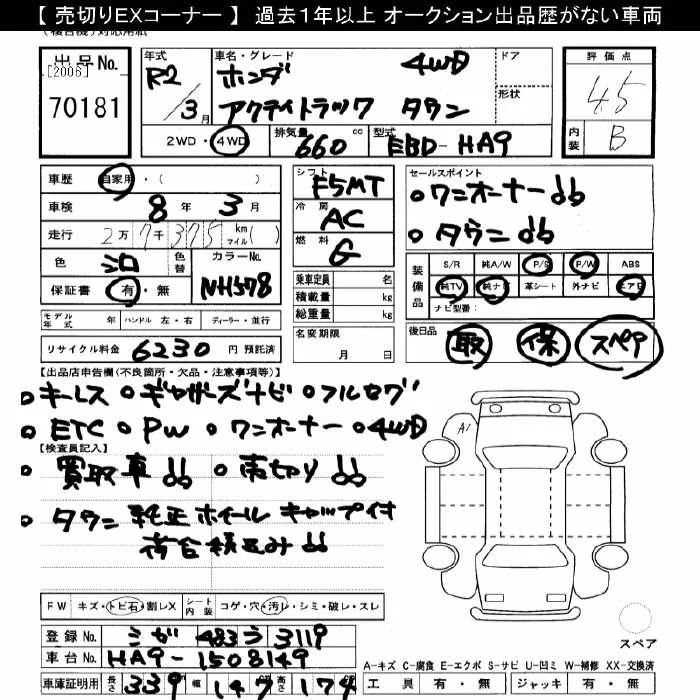 【 売切りEXコーナー 】 過去1年以上 オークション出品歴がない車両
出品No.
[2006]
70181
年式 R2/3月
車名・グレード ホンダ 4WD
アクティトラック タウン
ドア
形状
評価点
4.5
内装 B
2WD・4WD 排気量 660 cc 型式 EBD-HA9
車歴 自家用・( )
車検 8年3月
走行 2万7千375 km マイル( )
色 シロ 色替 カラーNo. NH578
保証書 有・無
シフト F5MT
冷房 AC
燃料 G
乗車定員 名
積載量 kg
総重量 kg
名変期限 月 日
セールスポイント
・ワンオーナー!!
・タウン!!
装備品 S/R 純A/W P/S P/W ABS
純TV 純ナビ 革シート 外ナビ エアB
ナビ型番:
モデル年式 年 ハンドル 左・右 ディーラー・並行
リサイクル料金 6230 円 預託済
後日品 取 保 スペア
【出品店申告欄(不良箇所・欠品・注意事項等)】
・キーレス ・ギャザーズナビ ・フルセグ
・ETC ・PW ・ワンオーナー ・4WD
【検査員記入】
・買取車!! ・売切り!!
・タウン 純正ホイールキャップ付
荷台積込み!!
A1
FW キズ・トビ石・割レX シート内装 コゲ・穴・汚レ・シミ・破レ・スレ
登録No. シガ 483 う 3119
車台No. HA9-1508149
車庫証明用 長さ 339 幅 147 高さ 174
スペア
A-キズ C-腐食 E-エクボ S-サビ U-凹ミ W-補修 XX-交換済
工具 有・無 ジャッキ 有・無